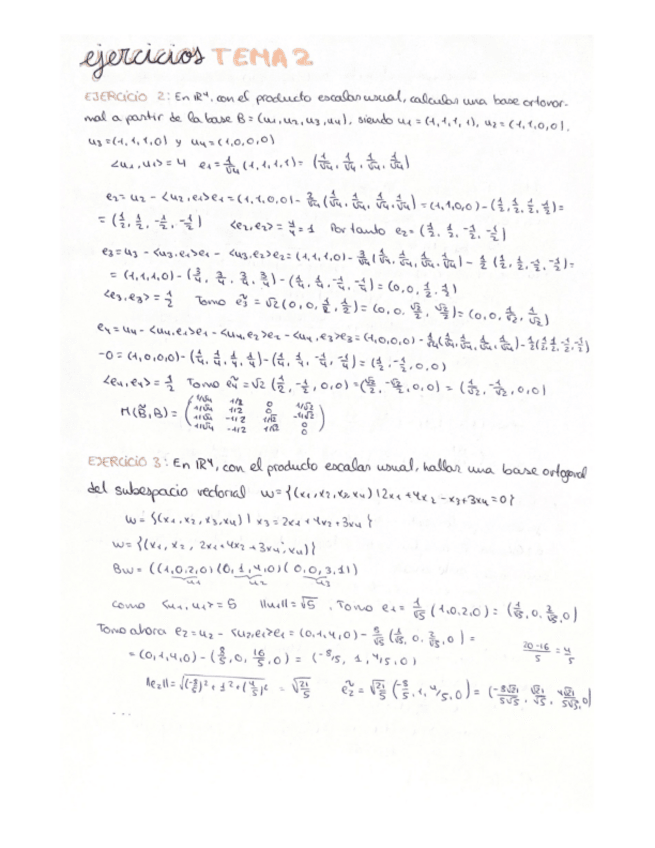 ejercicios TEMA 2
EJERCICIO 2: En IR⁴, con el producto escalar usual, calcular una base ortonor-
mal a partir de la base B = (u₁, u₂, u₃, u₄), siendo u₁ = (1,1,1,1), u₂ = (1,1,0,0),
u₃ = (1,1,1,0) y u₄ = (1,0,0,0)
<u₁,u₁> = 4 e₁ = 1/√4 (1,1,1,1) = (1/√4, 1/√4, 1/√4, 1/√4)
e₂ = u₂ - <u₂,e₁>e₁ = (1,1,0,0) - 2/√4 (1/√4, 1/√4, 1/√4, 1/√4) = (1,1,0,0) - (1/2, 1/2, 1/2, 1/2) =
= (1/2, 1/2, -1/2, -1/2) <e₂,e₂> = 4/4 = 1 Por tanto e₂ = (1/2, 1/2, -1/2, -1/2)
e₃ = u₃ - <u₃,e₁>e₁ - <u₃,e₂>e₂ = (1,1,1,0) - 3/√4 (1/√4, 1/√4, 1/√4, 1/√4) - 1/2 (1/2, 1/2, -1/2, -1/2) =
= (1,1,1,0) - (3/4, 3/4, 3/4, 3/4) - (1/4, 1/4, -1/4, -1/4) = (0,0, 1/2, -1/2)
<e₃,e₃> = 1/2 Tomo ẽ₃ = √2 (0,0, 1/2, 1/2) = (0,0, √2/2, √2/2) = (0,0, 1/√2, 1/√2)
e₄ = u₄ - <u₄,e₁>e₁ - <u₄,e₂>e₂ - <u₄,e₃>e₃ = (1,0,0,0) - 1/√4 (1/√4, 1/√4, 1/√4, 1/√4) - 1/2 (1/2, 1/2, -1/2, -1/2)
-0 = (1,0,0,0) - (1/4, 1/4, 1/4, 1/4) - (1/4, 1/4, -1/4, -1/4) = (1/2, -1/2, 0,0)
<e₄,e₄> = 1/2 Tomo ẽ₄ = √2 (1/2, -1/2, 0,0) = (√2/2, -√2/2, 0,0) = (1/√2, -1/√2, 0,0)
1/√4 1/2 0 1/√2
M(B̃,B) = ( 1/√4 1/2 0 -1/√2 )
1/√4 -1/2 1/√2 0
1/√4 -1/2 1/√2 0
EJERCICIO 3: En IR⁴, con el producto escalar usual, hallar una base ortogonal
del subespacio vectorial W = {(x₁,x₂,x₃,x₄) | 2x₁ + 4x₂ - x₃ + 3x₄ = 0}
W = {(x₁, x₂, x₃, x₄) | x₃ = 2x₁ + 4x₂ + 3x₄}
W = {(x₁, x₂, 2x₁ + 4x₂ + 3x₄, x₄)}
Bw = ((1,0,2,0) (0,1,4,0) (0,0,3,1))
u₁ u₂ u₃
como <u₁,u₁> = 5 ||u₁|| = √5, Tomo e₁ = 1/√5 (1,0,2,0) = (1/√5, 0, 2/√5, 0)
Tomo ahora e₂ = u₂ - <u₂,e₁>e₁ = (0,1,4,0) - 8/√5 (1/√5, 0, 2/√5, 0) =
= (0,1,4,0) - (8/5, 0, 16/5, 0) = (-8/5, 1, 4/5, 0)
20-16/5 = 4/5
||e₂|| = √(-8/5)² + 1² + (4/5)² = √21/5 ẽ₂ = √21/5 (-8/5, 1, 4/5, 0) = (-8√21/5√5, √21/√5, 4√21/5√5, 0)
...